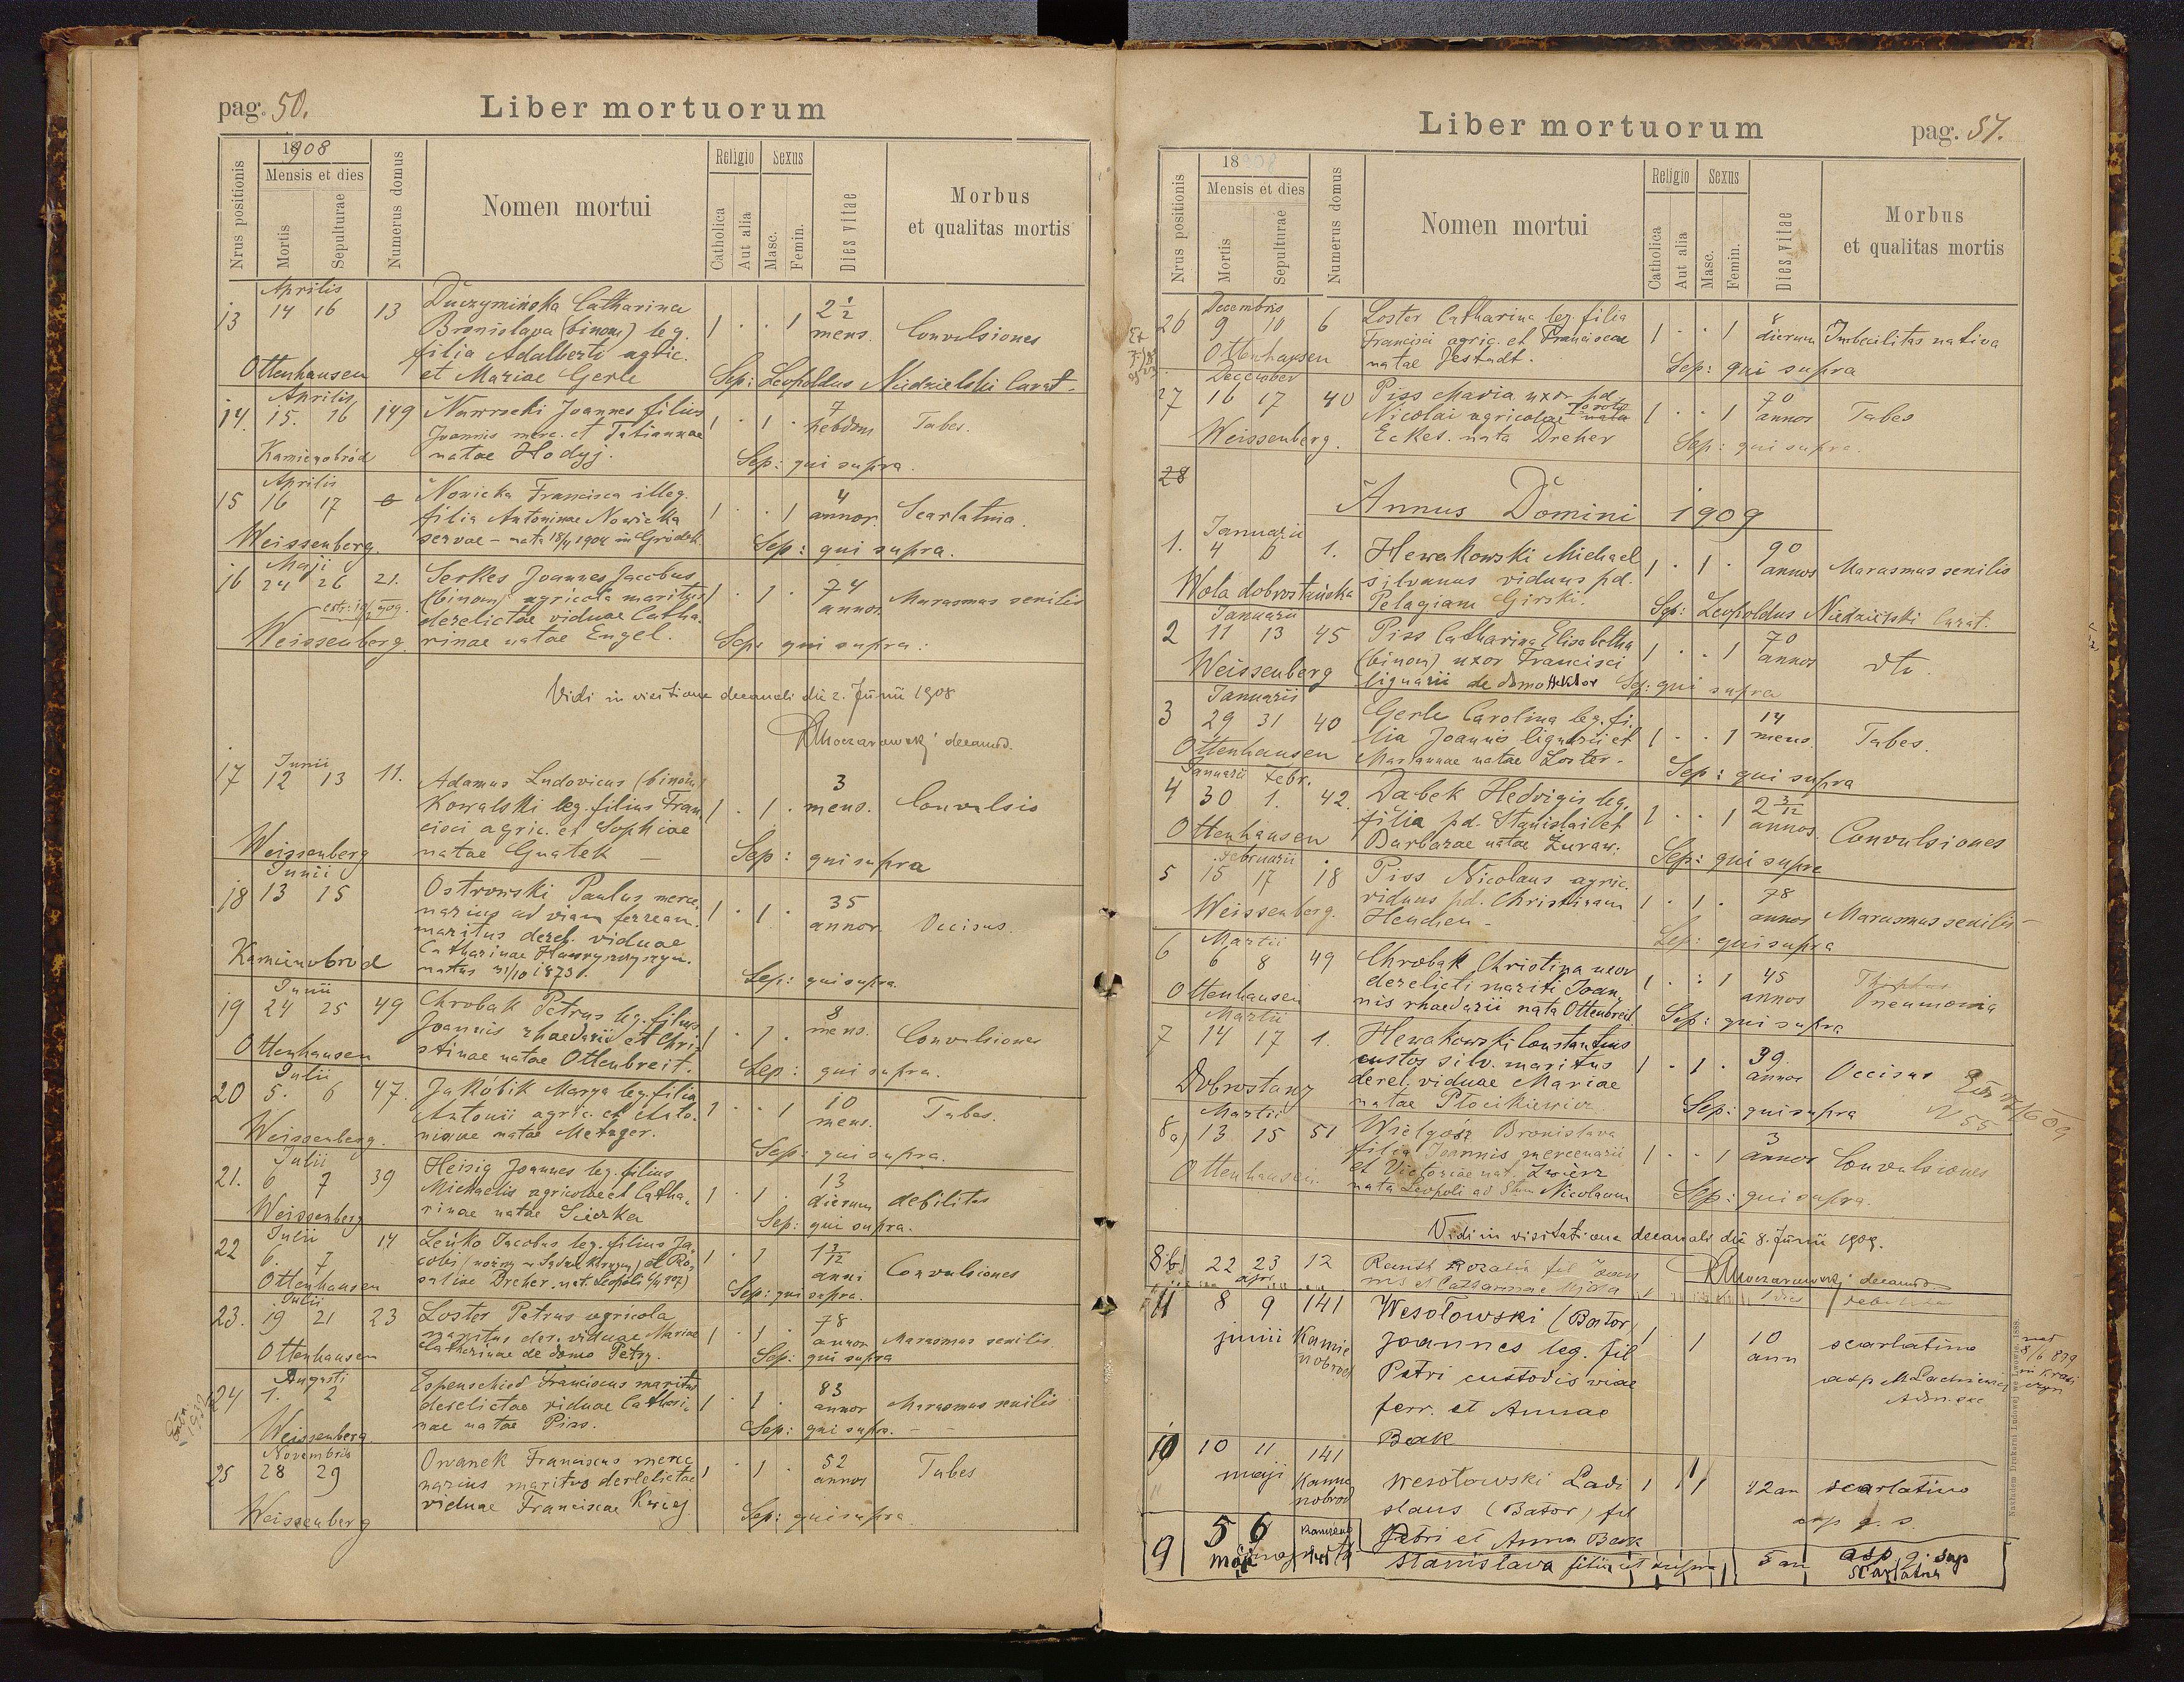 pag. 50.
Liber mortuorum
Nrus positionis
1908
Mensis et dies
Mortis
Sepulturae
Numerus domus
Nomen mortui
Religio
Catholica
Aut alia
Sexus
Masc.
Femin.
Dies vitae
Morbus
et qualitas mortis
Aprilis
13 14 16 13 Duczymińska Catharina 1 . . 1 2 1/2
Bronislava (binom) leg. mens. Convulsiones
filia Adalberti agric.
Ottenhausen et Mariae Gerle Sep: Leopoldus Niedzielski Curat.
Aprilis
14. 15. 16 149 Nawrocki Joannes filius 1 . 1 . 7
Joannis merc. et Tatiannae hebdom Tabes.
Kamienobród natae Hodyj. Sep: qui supra.
Aprilis
15 16 17 Nowicka Francisca illeg. 1 . . 1 4
filia Antoninae Nowicka annor. Scarlatina.
Weissenberg. servae - nata 18/4 1904 in Gródek. Sep: qui supra.
Maji
16 24 26 21. Serkes Joannes Jacobus 1 . 1 . 74
(binom) agricola maritus annos. Marasmus senilis
derelictae viduae Catha-
Weissenberg. rinae natae Engel. Sep: qui supra.
Vidi in visitatione decanali die 2. Junii 1908
decanus.
Junii
17 12 13 11. Adamus Ludovicus (binom) 3
Kowalski leg. filius Fran- 1 . 1 . mens. Convulsio
cisci agric. et Sophiae
Weissenberg natae Gnatek - Sep: qui supra
Junii
18 13 15 Ostrowski Paulus merce- 35
narius ad viam ferream. 1 . 1 . annor. Occisus.
maritus derel. viduae
Kamienobród Catharinae
natus 31/10 1873. Sep: qui supra.
Junii
19 24 25 49 Chrobak Petrus leg. filius 8
Joannis rhaedarii et Chri- 1 . 1 . mens. Convulsiones
Ottenhausen stinae natae Ottenbreit. Sep: qui supra.
Julii
20 5. 6 47. Jakóbik Marya leg. filia 10
Antonii agric. et Anto- 1 . . 1 mens. Tabes.
Weissenberg. ninae natae Metzger. Sep: qui supra.
Julii
21. 6 7 39 Heisig Joannes leg. filius 13
Michaelis agricolae et Catha- 1 . 1 . dierum debilitas
Weissenberg rinae natae Sieczka Sep: qui supra.
Julii
22 6. 7 14 Leńko Jacobus leg. filius Ja- 1 3/12
cobi et Ro- 1 . 1 anni Convulsiones
Ottenhausen saliae Dreher. nat. Leopoli Sep: qui supra.
Julii
23. 19 21 23 Loster Petrus agricola 78
maritus der. viduae Mariae 1 . 1 . annor Marasmus senilis
Ottenhausen Catharinae de domo Petry. Sep: qui supra
Augusti
24 1. 2 Espenschied Franciscus maritus 83
derelictae viduae Cathari- 1 . 1 . annor Marasmus senilis
Weissenberg. nae natae Piss. Sep: qui supra.
Novembris
25 28 29 Owanek Franciscus merce- 52
narius maritus derelictae 1 . 1 . annos Tabes
Weissenberg viduae Franciscae Sep: qui supra
Liber mortuorum
pag. 51.
Nrus positionis
1908
Mensis et dies
Mortis
Sepulturae
Numerus domus
Nomen mortui
Religio
Catholica
Aut alia
Sexus
Masc.
Femin.
Dies vitae
Morbus
et qualitas mortis
Decembris
26 9 10 6 Loster Catharina leg. filia 8
Francisci agric. et Franciscae 1 . . 1 dierum Imbecilitas nativa
Ottenhausen natae Jestadt. Sep: qui supra
December
27 16 17 40 Piss Maria uxor pd. 70
Nicolai agricolae nata 1 . . 1 annos Tabes
Weissenberg. Eckes. nata Dreher Sep: qui supra.
28
Annus Domini 1909
Januarii
1. 4 6 1. Hewakowski Michael 1 . 1 . 90
silvanus viduus pd. annos Marasmus senilis
Wola dobrostańska Pelagiam Girski. Sep: Leopoldus Niedzielski Curat.
Januarii
2 11 13 45 Piss Catharina Elisabetha 1 . . 1 70
(binom) uxor Francisci annos dto
Weissenberg lignarii de domo Hektor Sep: qui supra
Januarii
3 29 31 40 Gerle Carolina leg. fi- 14
lia Joannis lignarii et 1 . . 1 mens. Tabes.
Ottenhausen Mariannae natae Loster. Sep: qui supra
Januarii Febr.
4 30 1. 42. Dabek Hedvigis leg. 2 3/12
filia pd. Stanislai et 1 . . 1 annos. Convulsiones
Ottenhausen Barbarae natae Żuraw. Sep: qui supra
Februarii
5 15 17 18 Piss Nicolaus agric. 78
viduus pd. Christinam 1 . 1 . annos Marasmus senilis
Weissenberg. Henchen - Sep: qui supra
Martii
6 6 8 49 Chrobak Christina uxor 45
derelicti mariti Joan- 1 . . 1 annos pneumonia
Ottenhausen nis rhaedarii nata Ottenbreit. Sep: qui supra
Martii
7 14 17 1. Hewakowski Constantius 39
custos silv. maritus 1 . 1 . annos Occisus
derel. viduae Mariae
Dobrostany natae Płocikiewicz Sep: qui supra
N 55
Martii
8a) 13 15 51 Wielgósz Bronislava 3
filia Joannis mercenarii 1 . . 1 annor Convulsiones
Ottenhausen. et Victoriae nat. Zwierz
nata Leopoli ad Stum Nicolaum Sep: qui supra.
Vidi in visitatione decanali die 8. Junii 1909.
8b) 22 23 12 Rosalia fil Joan
apr. nis et Catharinae
decanus
11 8 9 141 Wesołowski (Bator)
junii Kamie Joannes leg. fil 1 1 10 scarlatina
nobrod Petri custodis viae ann
ferr. et Annae
Bak
10 10 11 141
maji Kamie Wesołowski Ladi 1 1 42 an scarlatina
nobrod slaus (Bator) fil
Petri et Anna Bak
9 5 6 Stanislava filia ut supra 5 an asp q. sup
maji scarlatina
Nakładem Drukarni Ludowej we Lwowie. 1888.